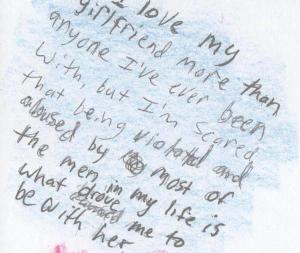 I love my
girlfriend more than
anyone I've ever been
with, but I'm scared
that being violated and
abused by most of
the men in my life is
what drove me to
be with her.